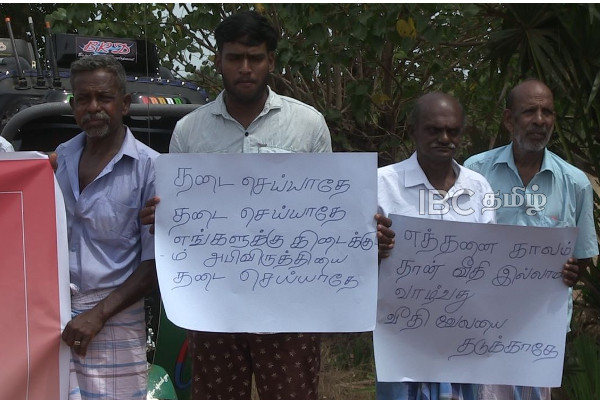 தடை செய்யாதே
தடை செய்யாதே
எங்களுக்கு கிடைக்கு
ம் அபிவிருத்தியை
தடை செய்யாதே
எத்தனை காலம்
தான் வீதி இல்லாமல்
வாழ்வது
வீதி வேலையை
தடுக்காதே
IBC தமிழ்